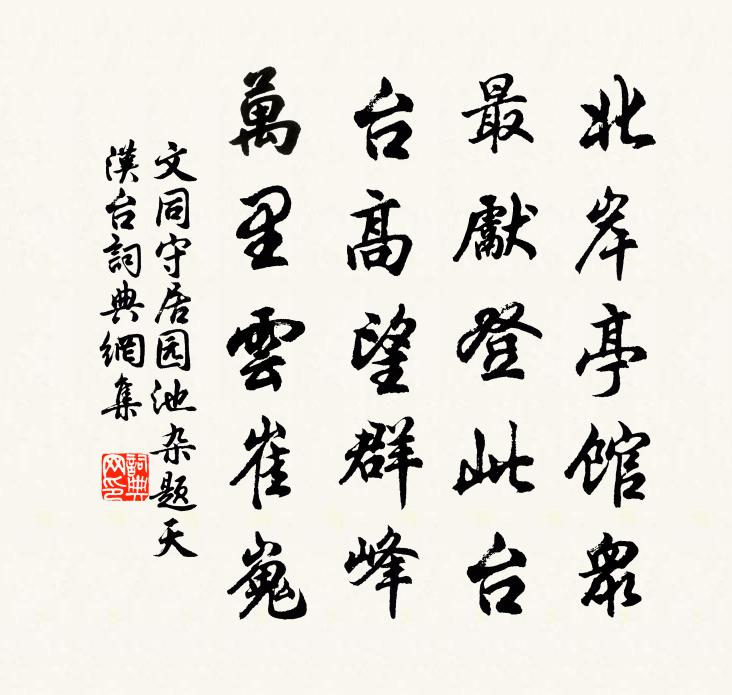 北岸亭馆眾
最獻登此台
台高望群峰
萬里雲崔嵬
文同守居园池杂题天
漢台詞典網集
詞典
网印